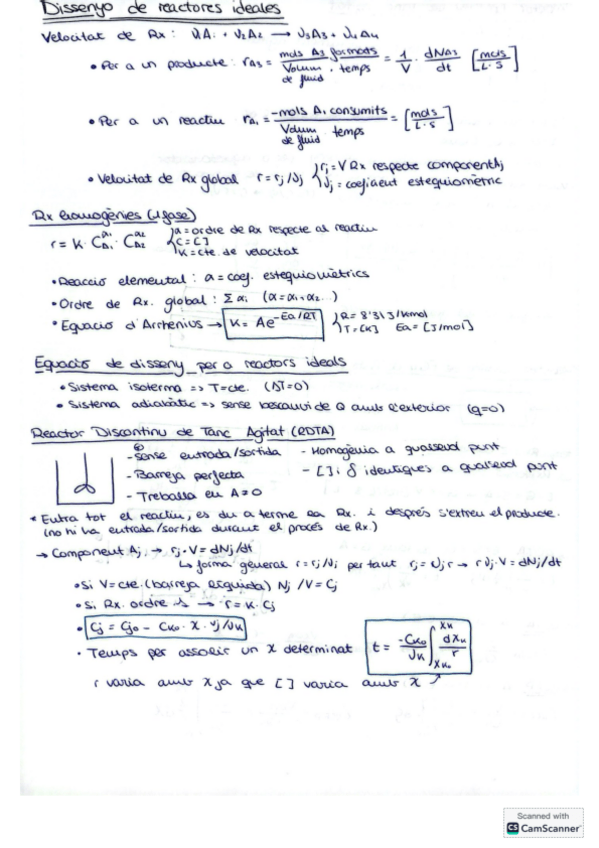 Dissenyo de reactores ideales
Velocitat de Rx: ν₁A₁ + ν₂A₂ → ν₃A₃ + ν₄A₄
• Per a un producte: rA₃ = mols A₃ formats / Volum de fluid · temps = 1/V · dNA₃/dt [mols/L·s]
• Per a un reactiu rA₁ = -mols A₁ consumits / Volum de fluid · temps = [mols/L·s]
• Velocitat de Rx global r = rj/νj { rj = V Rx respecte component j
νj = coeficient estequiomètric
Rx homogènies (1 fase)
r = K · CA₁^α1 · CA₂^α2 { α = ordre de Rx respecte al reactiu
C = [ ]
K = cte. de velocitat
• Reacció elemental: α = coef. estequiomètrics
• Ordre de Rx. global: Σ αi (α = α₁ + α₂...)
• Equació d'Arrhenius → K = Ae^-Ea/RT { R = 8'313/kmol
T = [K] Ea = [J/mol]
Equació de disseny per a reactors ideals
• Sistema isoterma => T = cte. (ΔT=0)
• Sistema adiabàtic => sense bescanvi de Q amb l'exterior (q=0)
Reactor Discontinu de Tanc Agitat (RDTA)
- sense entrada/sortida - Homogènia a qualsevol punt
- Barreja perfecta - [ ] i δ identiques a qualsevol punt
- Treballa en A=0
* Entra tot el reactiu, es du a terme la Rx. i després s'extreu el producte.
(no hi ha entrada/sortida durant el procés de Rx.)
→ Component Aj → rj · V = dNj/dt
↳ forma general r = rj/νj per tant rj = νj r → r νj · V = dNj/dt
• Si V = cte. (barreja líquida) Nj / V = Cj
• Si Rx. ordre 1 → r = K · Cj
• Cj = Cj₀ - Ck₀ · X · νj/νk
• Temps per assolir un X determinat t = -Ck₀/νk ∫ Xk₀ Xk dXk/r
r varia amb X ja que [ ] varia amb X
Scanned with
CS CamScanner